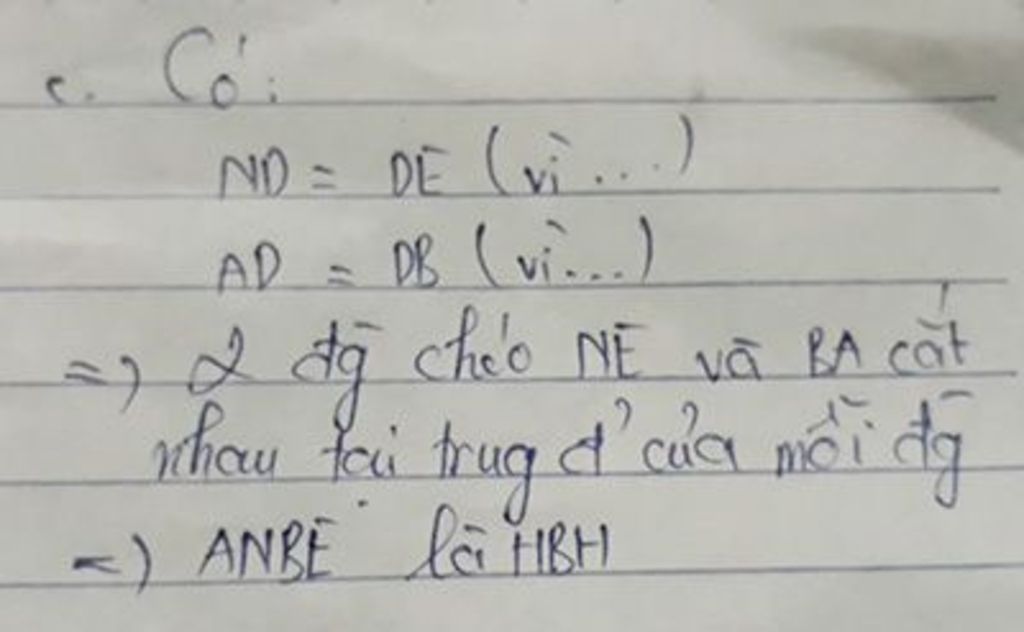 c. Có:
ND = DE (vì ...)
AD = DB (vì ...)
=> 2 đg̀ chéo NE và BA cắt
nhau tại trug đ' của mỗi đg̀
=> ANBE là HBH